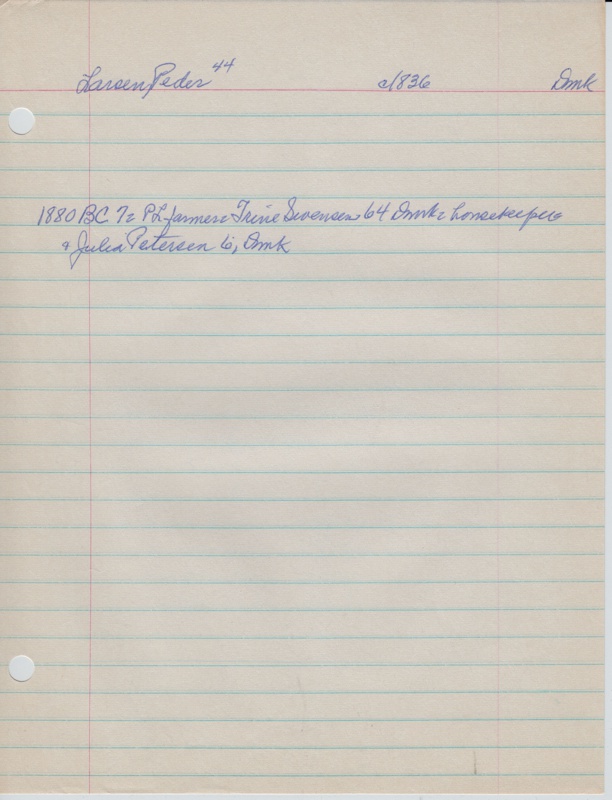 Larsen Peder 44 c1836 Dmk
1880 BC 72 PL farmer & Trine Swensen 64 Dmk & housekeeper
& Julia Petersen 6, Dmk